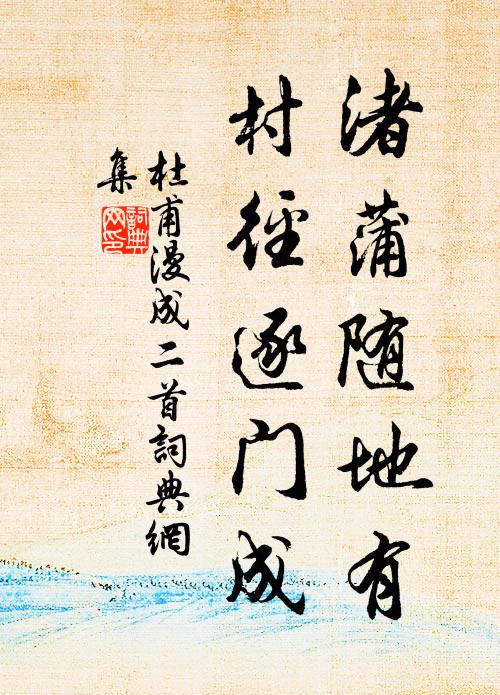 渚蒲随地有
村径逐门成
杜甫漫成二首詞典網
集
詞典
网印